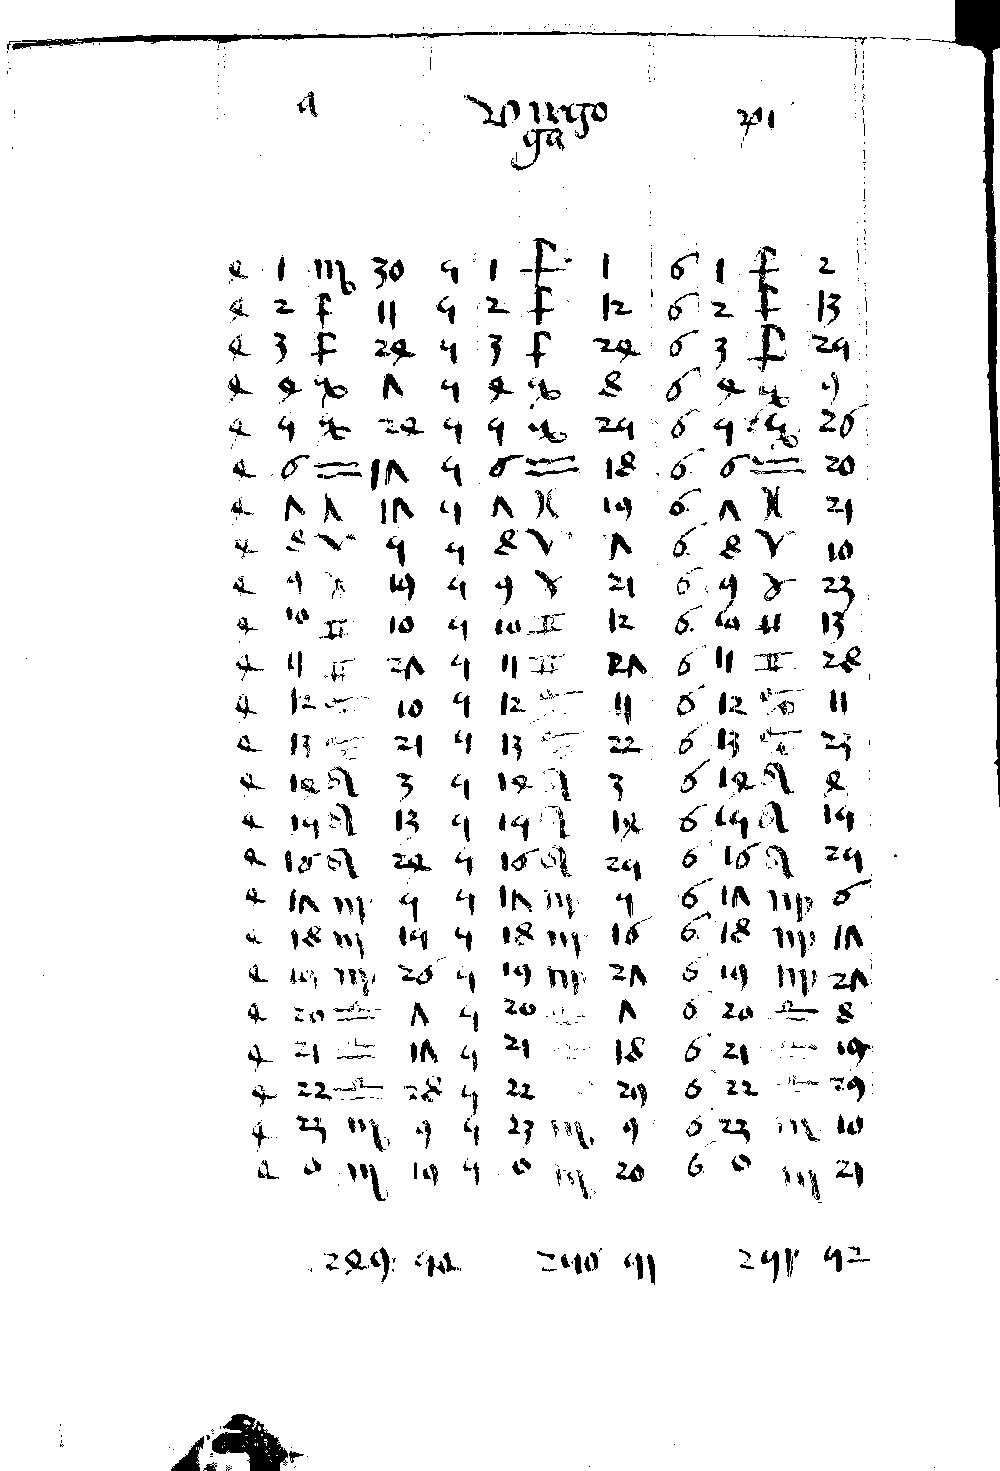 a Virgo vi
ga
4 1 ♏ 30 5 1 ♐ 1 6 1 ♐ 2
4 2 ♐ 11 5 2 ♐ 12 6 2 ♐ 13
4 3 ♐ 24 5 3 ♐ 24 6 3 ♐ 25
4 4 ♑ 7 5 4 ♑ 8 6 4 ♑ 9
4 5 ♑ 24 5 5 ♑ 25 6 5 ♑ 26
4 6 ♒ 17 5 6 ♒ 18 6 6 ♒ 20
4 7 ♓ 17 5 7 ♓ 19 6 7 ♓ 21
4 8 ♈ 5 5 8 ♈ 7 6 8 ♈ 10
4 9 ♉ 19 5 9 ♉ 21 6 9 ♉ 23
4 10 ♊ 10 5 10 ♊ 12 6 10 ♊ 13
4 11 ♊ 27 5 11 ♊ 27 6 11 ♊ 28
4 12 ♋ 10 5 12 ♋ 11 6 12 ♋ 11
4 13 ♋ 21 5 13 ♋ 22 6 13 ♋ 23
4 14 ♌ 3 5 14 ♌ 3 6 14 ♌ 4
4 15 ♌ 13 5 15 ♌ 14 6 15 ♌ 15
4 16 ♌ 24 5 16 ♌ 25 6 16 ♌ 25
4 17 ♍ 5 5 17 ♍ 5 6 17 ♍ 6
4 18 ♍ 15 5 18 ♍ 16 6 18 ♍ 17
4 19 ♍ 26 5 19 ♍ 27 6 19 ♍ 27
4 20 ♎ 7 5 20 ♎ 7 6 20 ♎ 8
4 21 ♎ 17 5 21 ♎ 18 6 21 ♎ 19
4 22 ♎ 28 5 22 29 6 22 ♎ 29
4 23 ♏ 9 5 23 ♏ 9 6 23 ♏ 10
4 0 ♏ 19 5 0 ♏ 20 6 0 ♏ 21
249 50 250 51 251 52